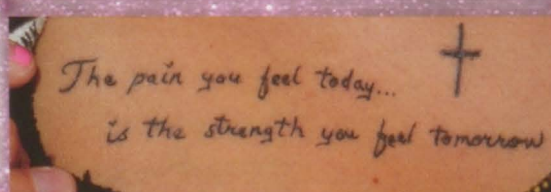 The pain you feel today...
is the strength you feel tomorrow